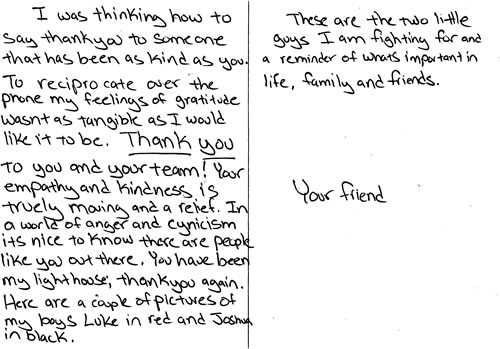 I was thinking how to
say thankyou to someone
that has been as kind as you.
To reciprocate over the
phone my feelings of gratitude
wasnt as tangible as I would
like it to be. Thank you
to you and your team! Your
empathy and kindness is
truely moving and a relief. In
a world of anger and cynicism
its nice to know there are people
like you out there. You have been
my lighthouse, thankyou again.
Here are a couple of pictures of
my boys Luke in red and Joshua
in black.
These are the two little
guys I am fighting for and
a reminder of whats important in
life, family and friends.
Your friend